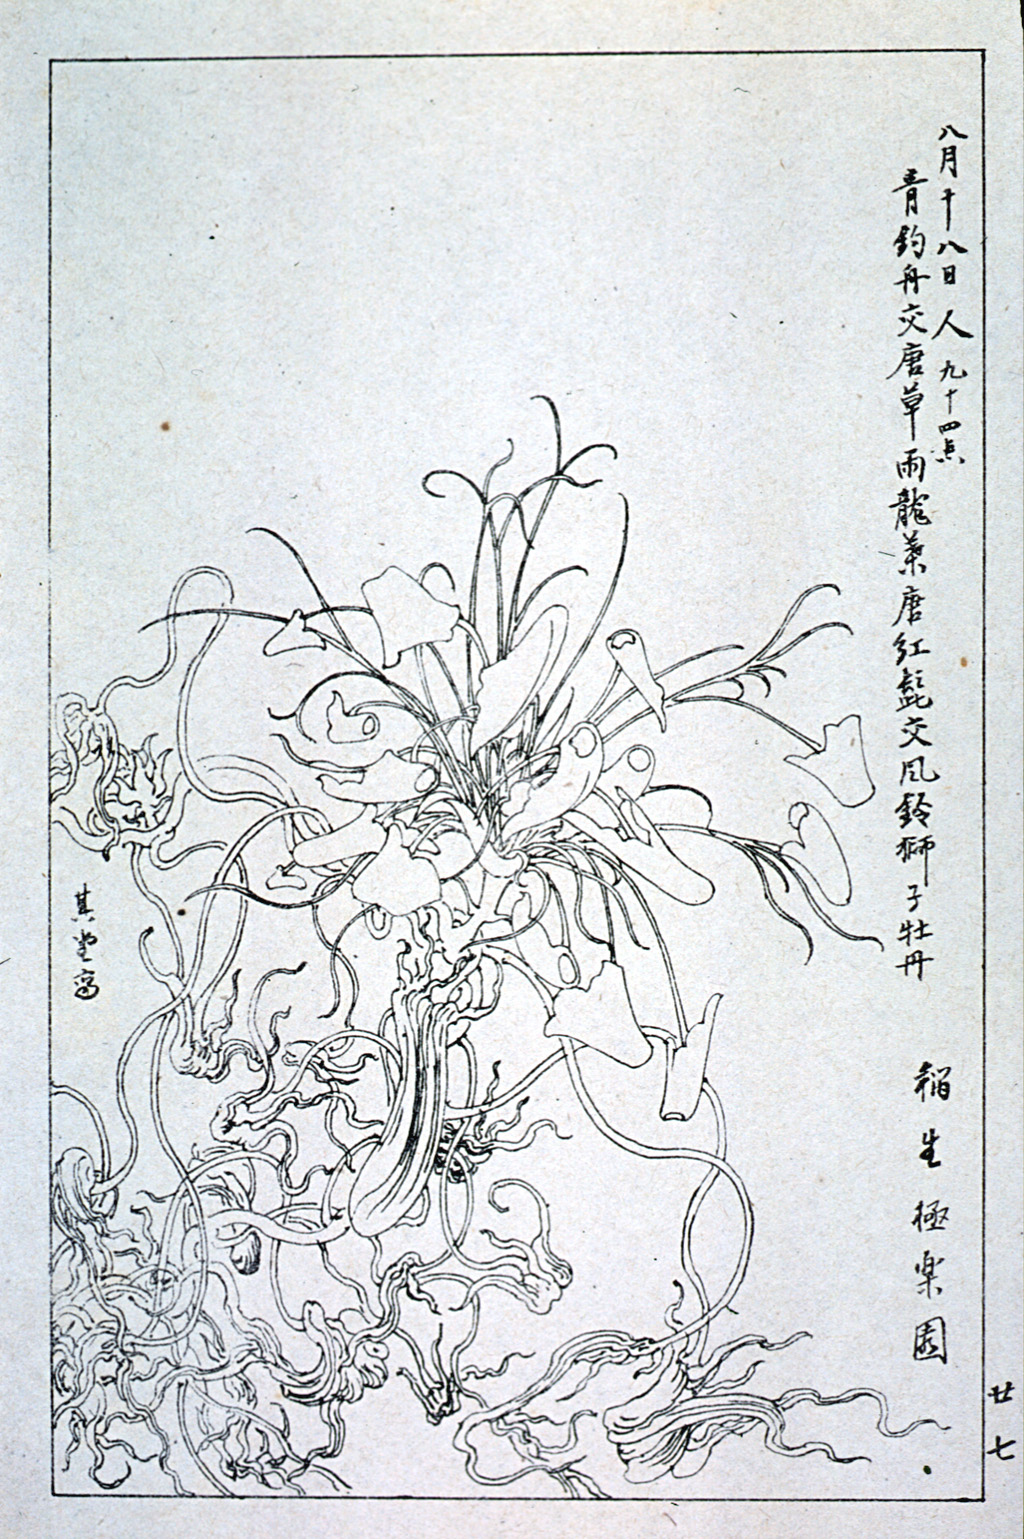 八月十八日 人 九十四点
青鈎舟交唐草雨龍葉唐紅髭交風鈴獅子牡丹
稲生極楽園
廿七
其堂写